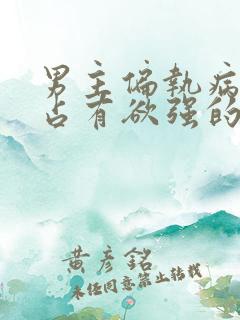 男主偏執病
占有欲強的
黄彥銘
未经同意禁止转载